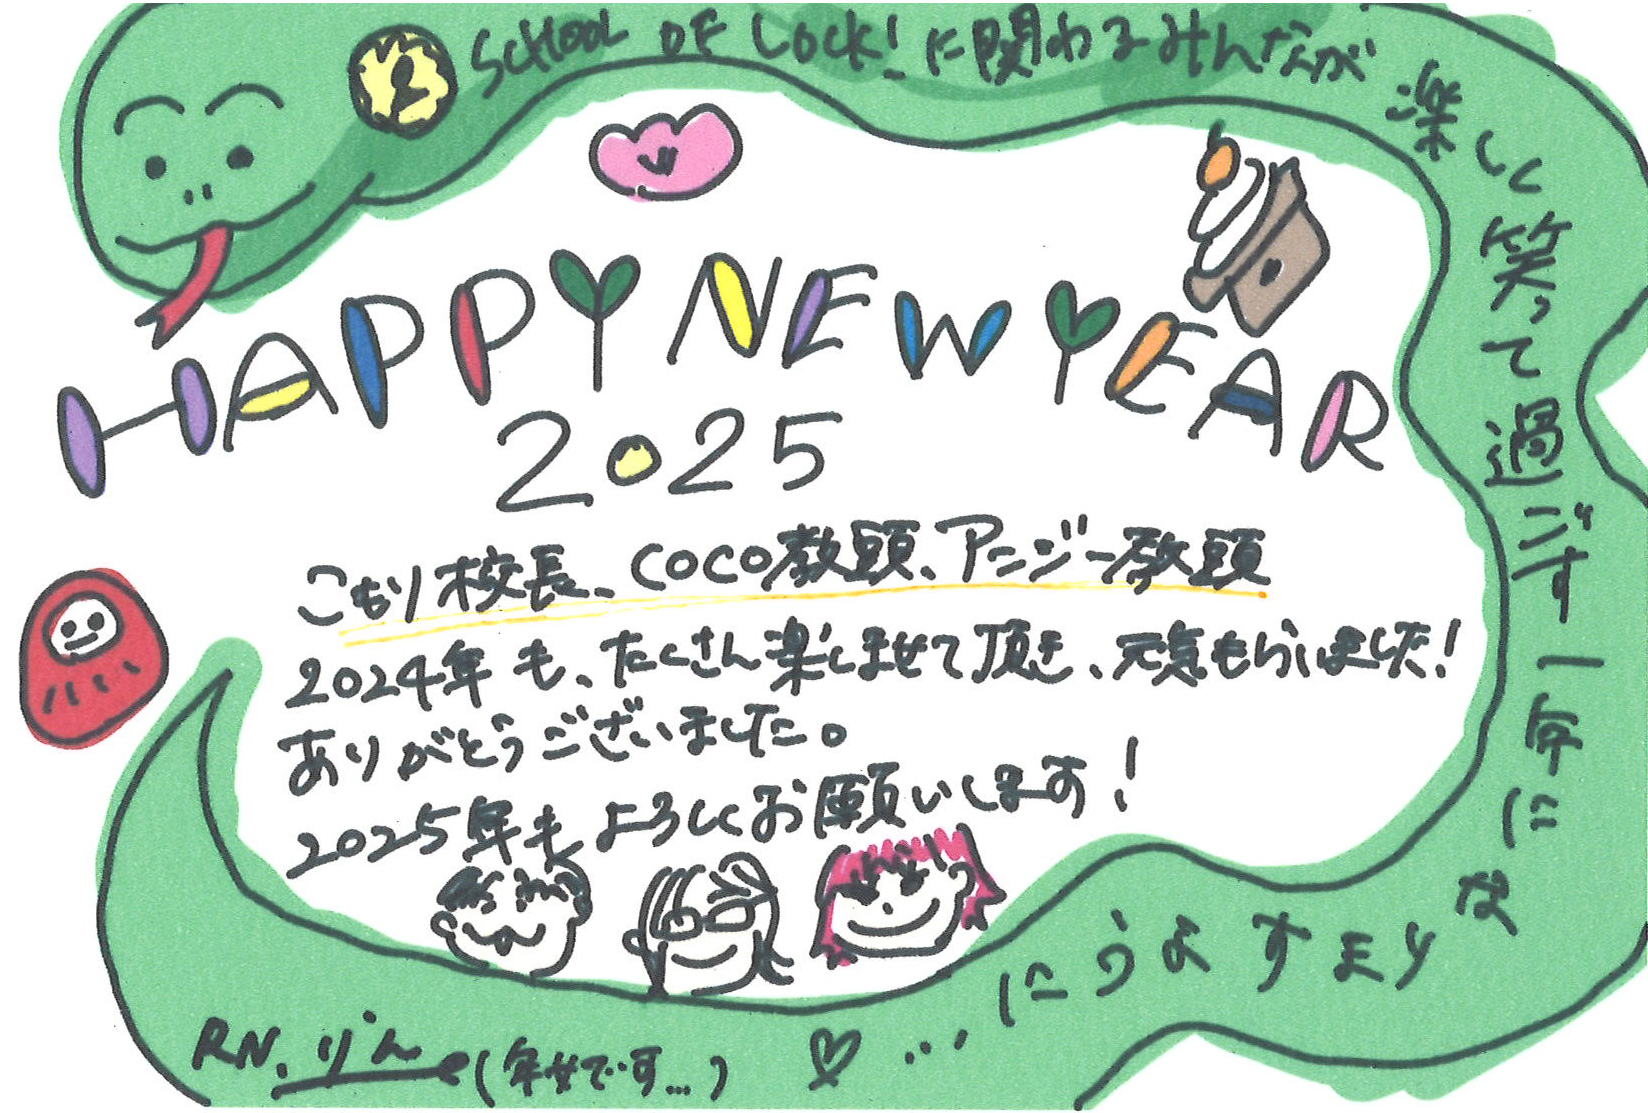 SCHOOL OF LOCK!に関わるみんなが
楽しく笑って過ごす一年に
なりますように…♡
HAPPY NEW YEAR
2025
こもり校長、COCO教頭、アンジー教頭
2024年も、たくさん楽しませて頂き、元気もらいました!
ありがとうございました。
2025年もよろしくお願いします!
RN.りん(年女です…)